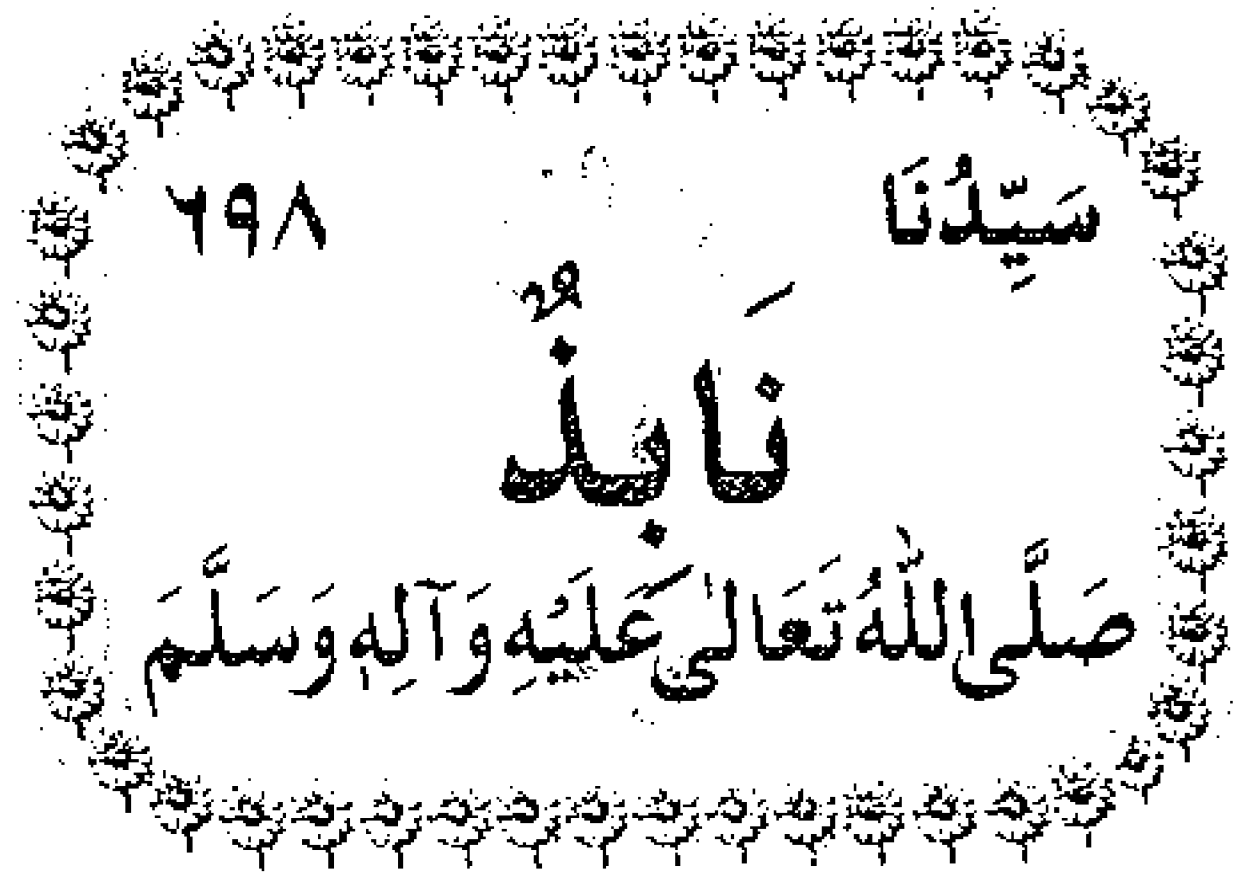 سَيِّدُنَا ٦٩٨
نَابِذٌ
صَلَّى اللّٰهُ تَعَالىٰ عَلَيْهِ وَآلِهٖ وَسَلَّمَ